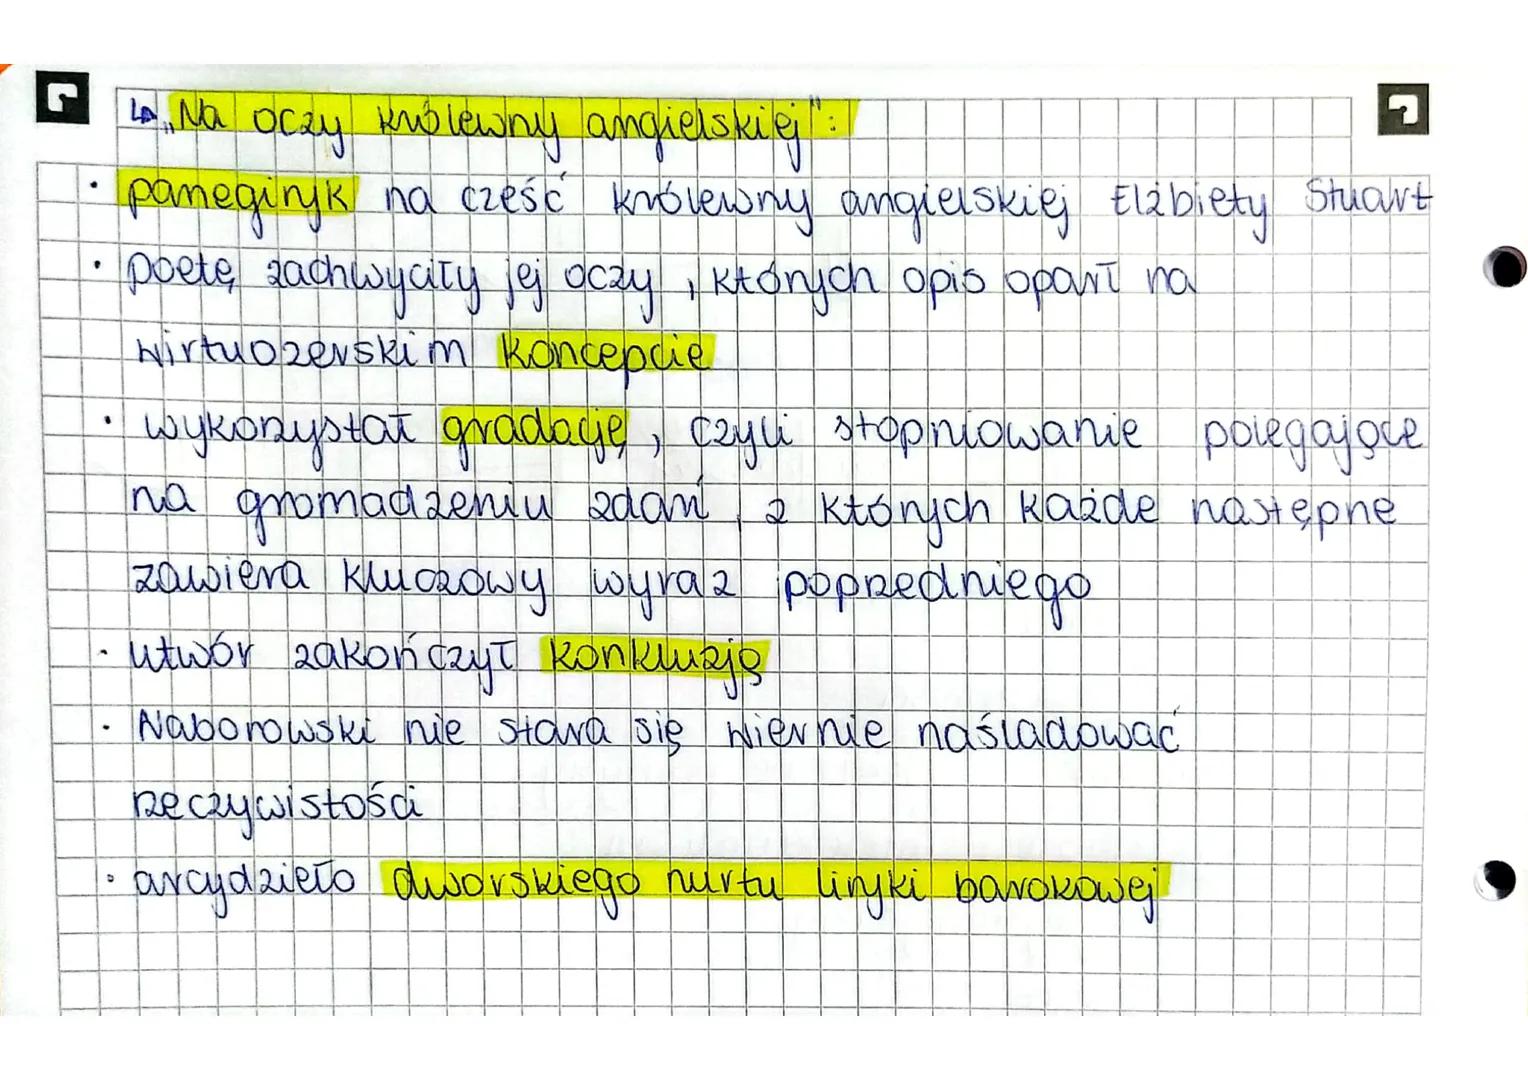 ↳ „Na oczy królewny angielskiej":
· panegiryk na cześć królewny angielskiej Elżbiety Stuart
· poetę zachwyciły jej oczy, których opis oparł na
wirtuozerskim koncepcie
· wykorzystał gradację, czyli stopniowanie polegające
na gromadzeniu zdań, z których każde następne
zawiera kluczowy wyraz poprzedniego
· utwór zakończył konkluzją
· Naborowski nie stara się wiernie naśladować
rzeczywistości
· arcydzieło dworskiego nurtu liryki barokowej